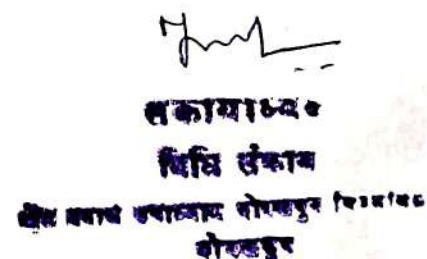 संकायाध्यक्ष
विधि संकाय
दीन दयाल उपाध्याय गोरखपुर विश्वविद्यालय
गोरखपुर